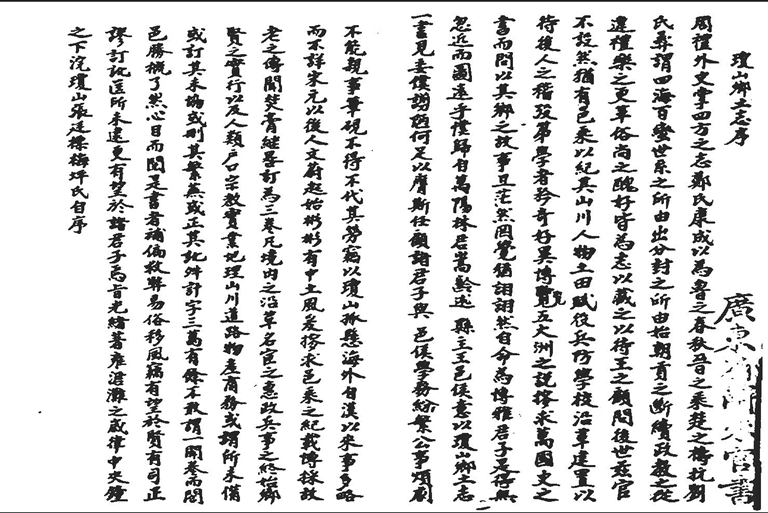 瓊山鄉土志序
周禮外史掌四方之志鄭氏康成以為魯之春秋晉之乘楚之檮杌劉
氏彝謂四海百蠻世系之所由出分封之所由始朝貢之斷續政教之從
違禮樂之更革俗尚之醜好皆為志以藏之以待王之顧問後世茲官
不設然猶有邑乘以紀其山川人物土田賦役兵防學校沿革建置以
待後人之稽攷第學者矜奇好異博覽五大洲之說搜求萬國史之
書而問以其鄉之故事且茫然罔覺猶詡詡然自命為博雅君子是得無
忽近而圖遠乎憬歸自萬陽林君嵩齡述 縣主王邑侯意以瓊山鄉土志
一書見委僕謭陋何足以膺斯任顧諸君子與 邑侯學務紛繁公事煩劇
不能親事筆硯不得不代其勞竊以瓊山孤懸海外自漢以來事多略
而不詳宋元以後人文蔚起始彬彬有中土風爰搜求邑乘之紀載博採故
老之傳聞焚膏繼晷訂為三卷凡境內之沿革名宦之惠政兵事之終始鄉
賢之實行以及人類戶口宗教實業地理山川道路物產商務或謂所未備
或訂其未協或刪其繁蕪或正其訛舛計字三萬有餘不敢謂一開卷而閤
邑勝概了然心目而閱是書者補偏救弊易俗移風竊有望於賢有司正
謬訂訛匡所未逮更有望於諸君子焉旹光緒著雍涒灘之歲律中夾鐘
之下浣瓊山張廷標梅坪氏自序